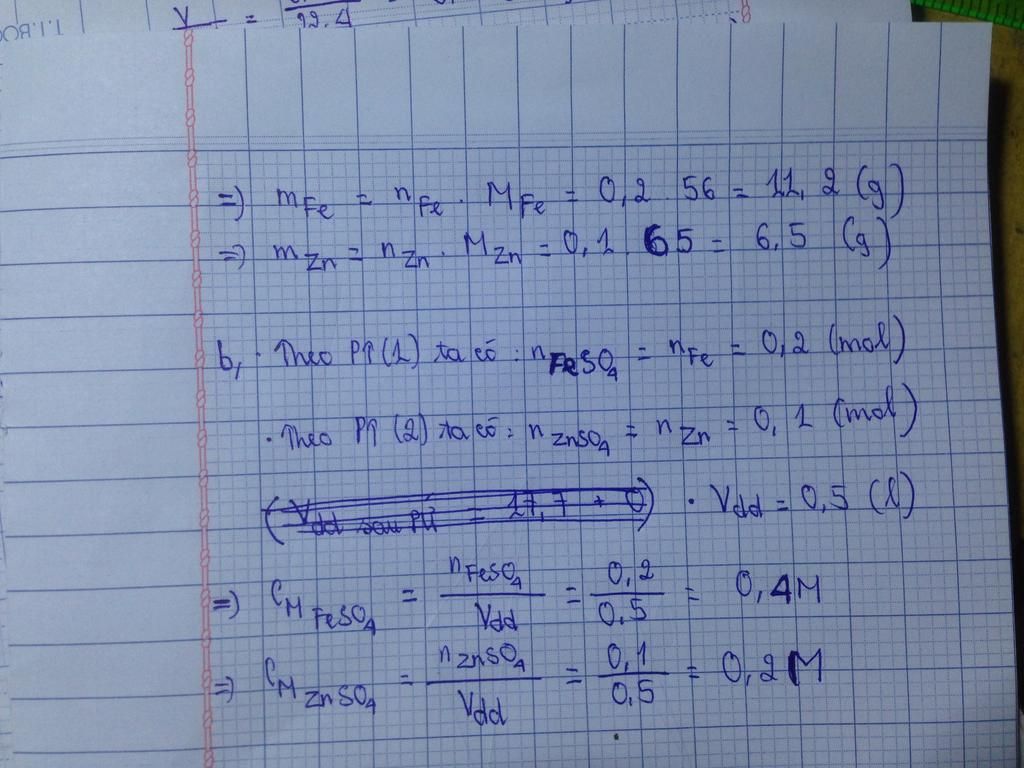 V = 22.4
=) mFe = nFe . MFe = 0,2 . 56 = 11,2 (g)
=) mZn = nZn . MZn = 0,1 . 65 = 6,5 (g)
b, . Theo PT (1) ta có : nFeSO4 = nFe = 0,2 (mol)
. Theo PT (2) ta có : nZnSO4 = nZn = 0,1 (mol)
(Vdd sau PƯ = 17,7 + 0) . Vdd = 0,5 (l)
=) CM FeSO4 = nFeSO4 / Vdd = 0,2 / 0,5 = 0,4M
=) CM ZnSO4 = nZnSO4 / Vdd = 0,1 / 0,5 = 0,2M